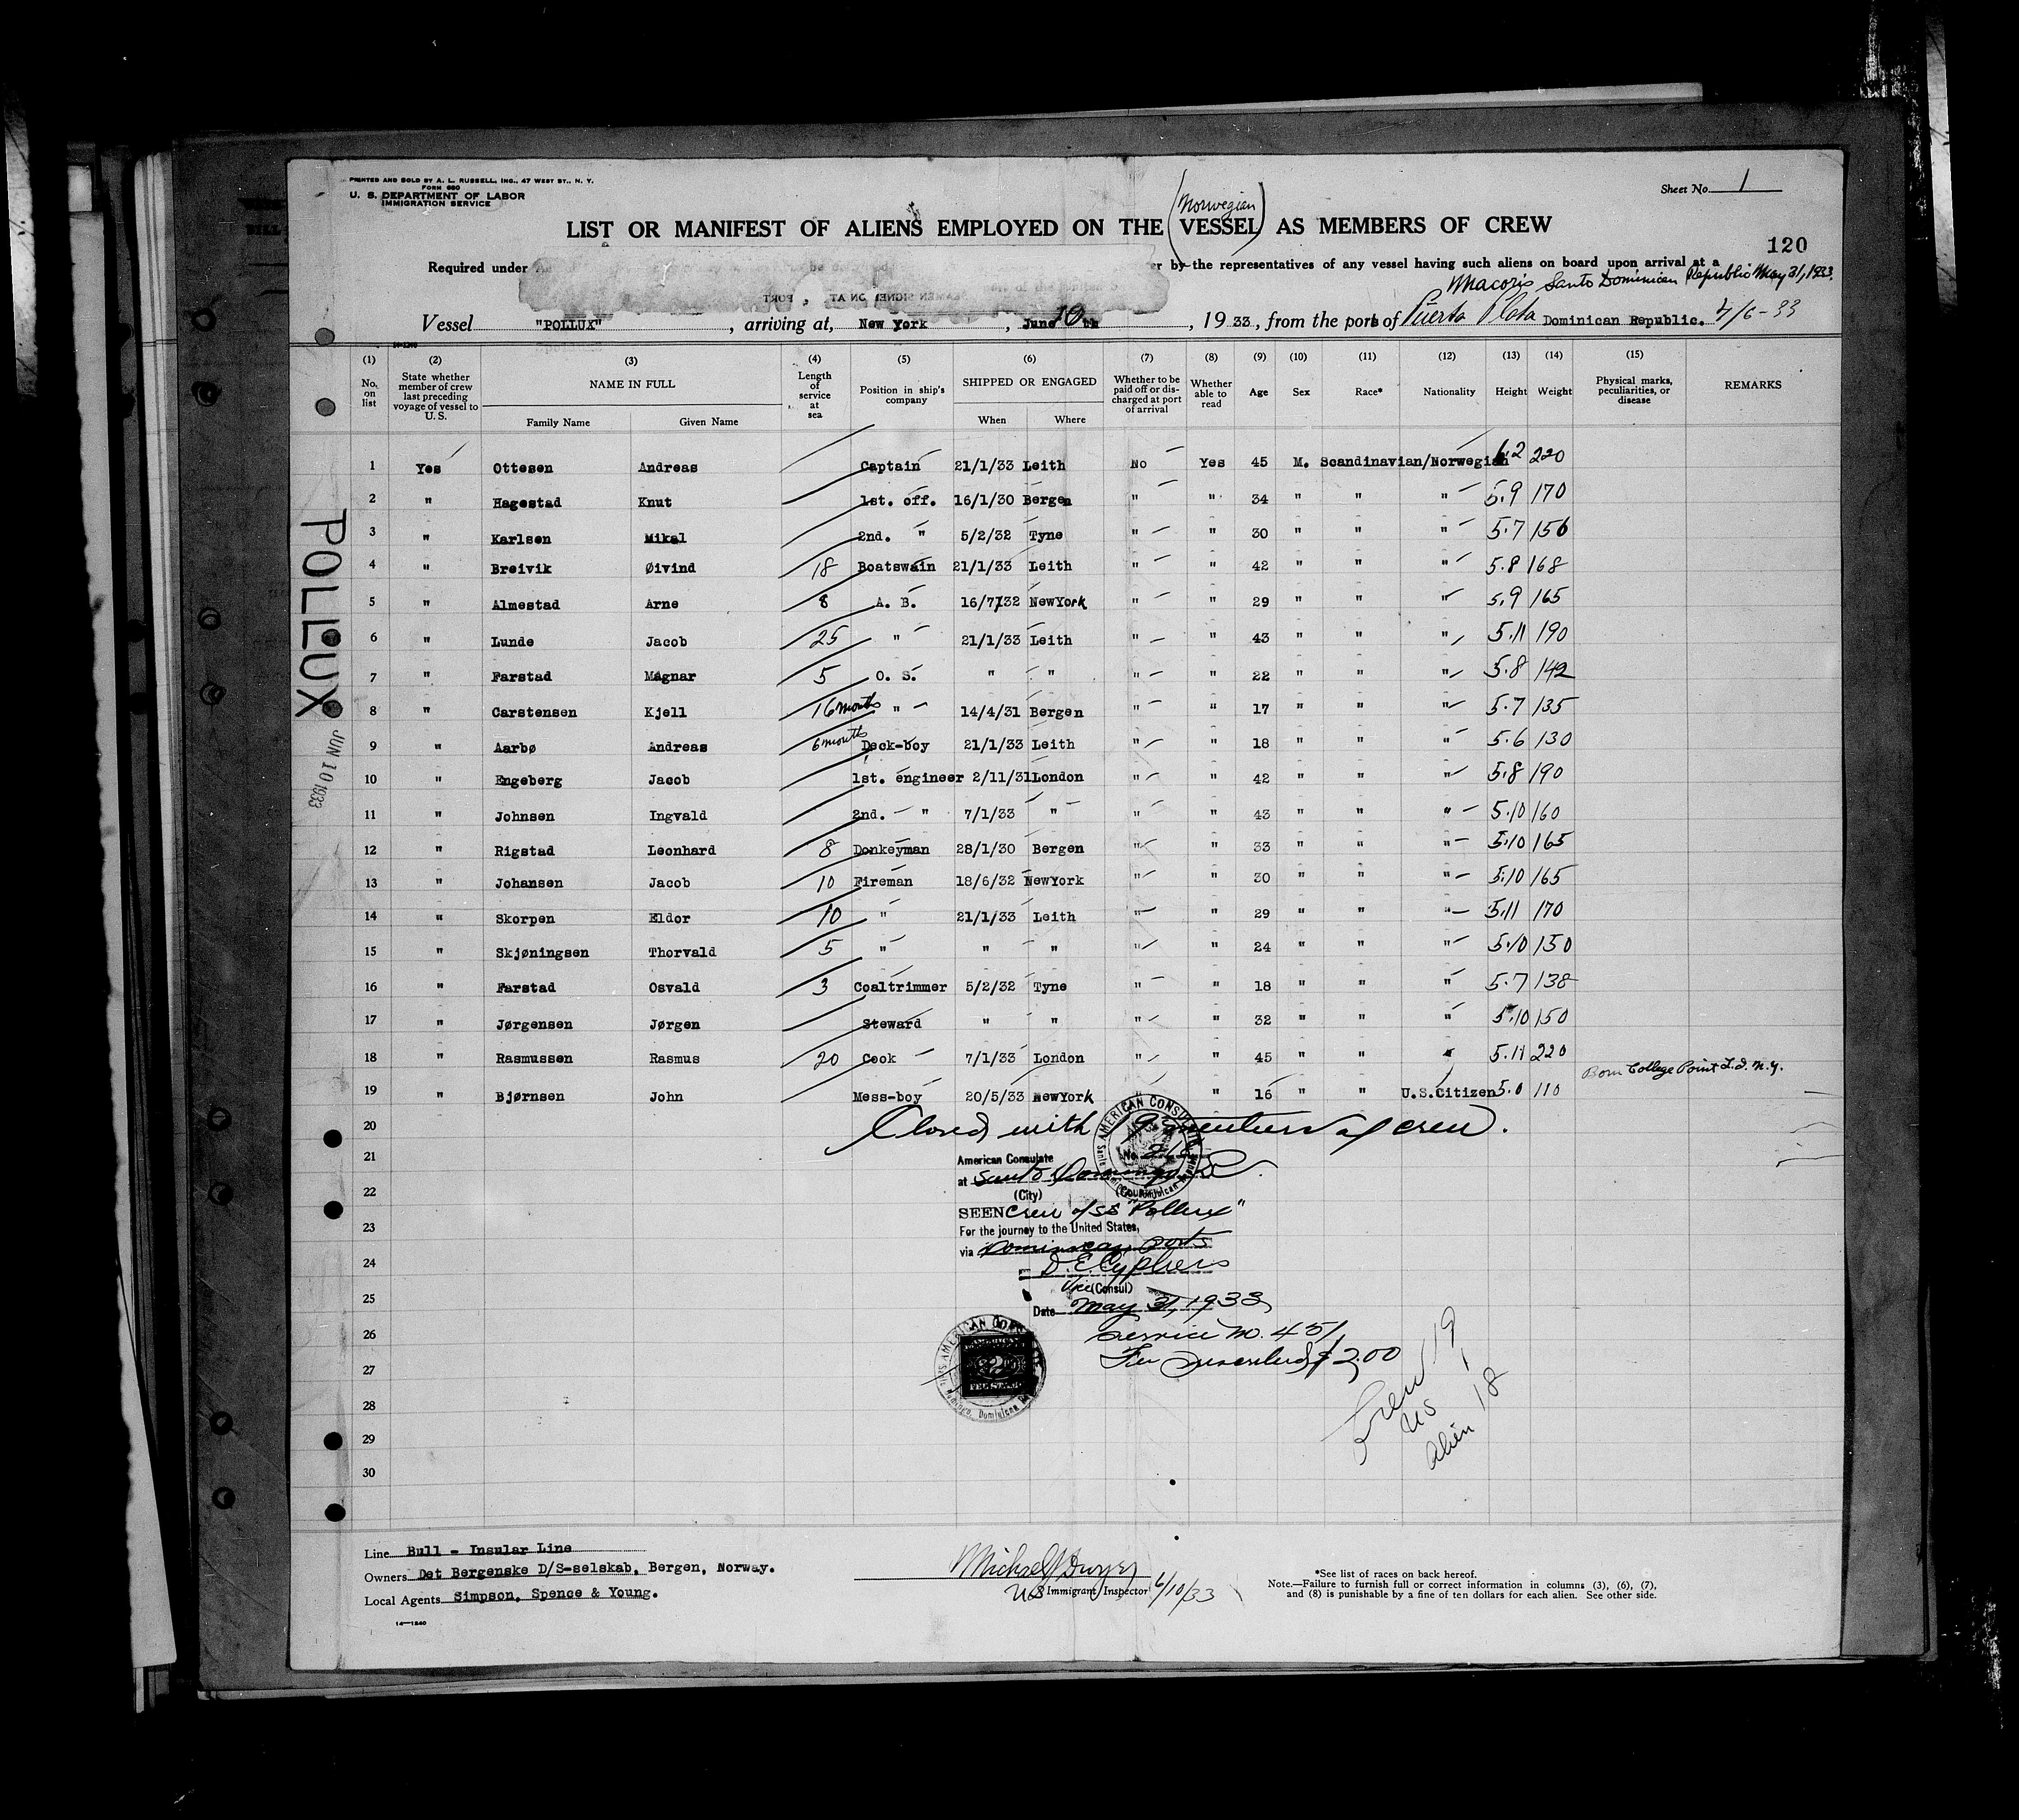 PRINTED AND SOLD BY A. L. RUSSELL, INC., 47 WEST ST., N. Y.
FORM 680
U. S. DEPARTMENT OF LABOR
IMMIGRATION SERVICE
Sheet No. 1
(Norwegian)
LIST OR MANIFEST OF ALIENS EMPLOYED ON THE VESSEL AS MEMBERS OF CREW
120
Required under
by the representatives of any vessel having such aliens on board upon arrival at a
Macoris Santo Dominican Republic May 31, 1933.
Vessel "POLLUX", arriving at, New York, June 10th, 1933, from the port of Puerto Plata Dominican Republic. 4/6-33
(1) (2) (3) (4) (5) (6) (7) (8) (9) (10) (11) (12) (13) (14) (15)
No. on list State whether member of crew last preceding voyage of vessel to U. S. NAME IN FULL Length of service at sea Position in ship's company SHIPPED OR ENGAGED Whether to be paid off or discharged at port of arrival Whether able to read Age Sex Race* Nationality Height Weight Physical marks, peculiarities, or disease REMARKS
Family Name Given Name When Where
1 Yes Ottesen Andreas Captain 21/1/33 Leith No Yes 45 M. Scandinavian/Norwegian 6.2 220
2 " Hagestad Knut 1st. off. 16/1/30 Bergen " " 34 " " " 5.9 170
3 " Karlsen Mikal 2nd. " 5/2/32 Tyne " " 30 " " " 5.7 156
4 " Breivik Øivind 18 Boatswain 21/1/33 Leith " " 42 " " " 5.8 168
5 " Almestad Arne 8 A. B. 16/7/32 NewYork " " 29 " " " 5.9 165
6 " Lunde Jacob 25 " 21/1/33 Leith " " 43 " " " 5.11 190
7 " Farstad Magnar 5 O. S. " " " " 22 " " " 5.8 142
8 " Carstensen Kjell 16 months " 14/4/31 Bergen " " 17 " " " 5.7 135
9 " Aarbø Andreas 6 months Deck-boy 21/1/33 Leith " " 18 " " " 5.6 130
10 " Engeberg Jacob 1st. engineer 2/11/31 London " " 42 " " " 5.8 190
11 " Johnsen Ingvald 2nd. " 7/1/33 " " " 43 " " " 5.10 160
12 " Rigstad Leonhard 8 Donkeyman 28/1/30 Bergen " " 33 " " " 5.10 165
13 " Johansen Jacob 10 Fireman 18/6/32 NewYork " " 30 " " " 5.10 165
14 " Skorpen Eldor 10 " 21/1/33 Leith " " 29 " " " 5.11 170
15 " Skjøningsen Thorvald 5 " " " " " 24 " " " 5.10 150
16 " Farstad Osvald 3 Coaltrimmer 5/2/32 Tyne " " 18 " " " 5.7 138
17 " Jørgensen Jørgen Steward " " " " 32 " " " 5.10 150
18 " Rasmussen Rasmus 20 Cook 7/1/33 London " " 45 " " " 5.11 220
19 " Bjørnsen John Mess-boy 20/5/33 NewYork " " 16 " " U.S.Citizen 5.0 110 Born College Point L.I. N.Y.
20
21
22
23
24
25
26
27
28
29
30
Closed with 19 members of crew.
American Consulate
at Santo Domingo
(City)
SEEN Crew of SS "Pollux"
For the journey to the United States,
via Dominican ports
D. E. Cyphers
Vice (Consul)
Date May 31, 1933
Service No. 451
Fee $2.00
Crew 19
US 1
Alien 18
POLLUX
JUN 10 1933
Line Bull - Insular Line
Owners Det Bergenske D/S-selskab, Bergen, Norway.
Local Agents Simpson, Spence & Young.
14-1240
Michael J Dwyer
US Immigrant Inspector 6/10/33
*See list of races on back hereof.
Note.—Failure to furnish full or correct information in columns (3), (6), (7),
and (8) is punishable by a fine of ten dollars for each alien. See other side.